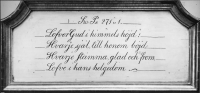 Sv. Ps. 271 v. 1.
Lofven Gud i himmels höjd!
Hvarje själ till honom böjd,
Hvarje stämma glad och from
Lofve i hans helgedom.